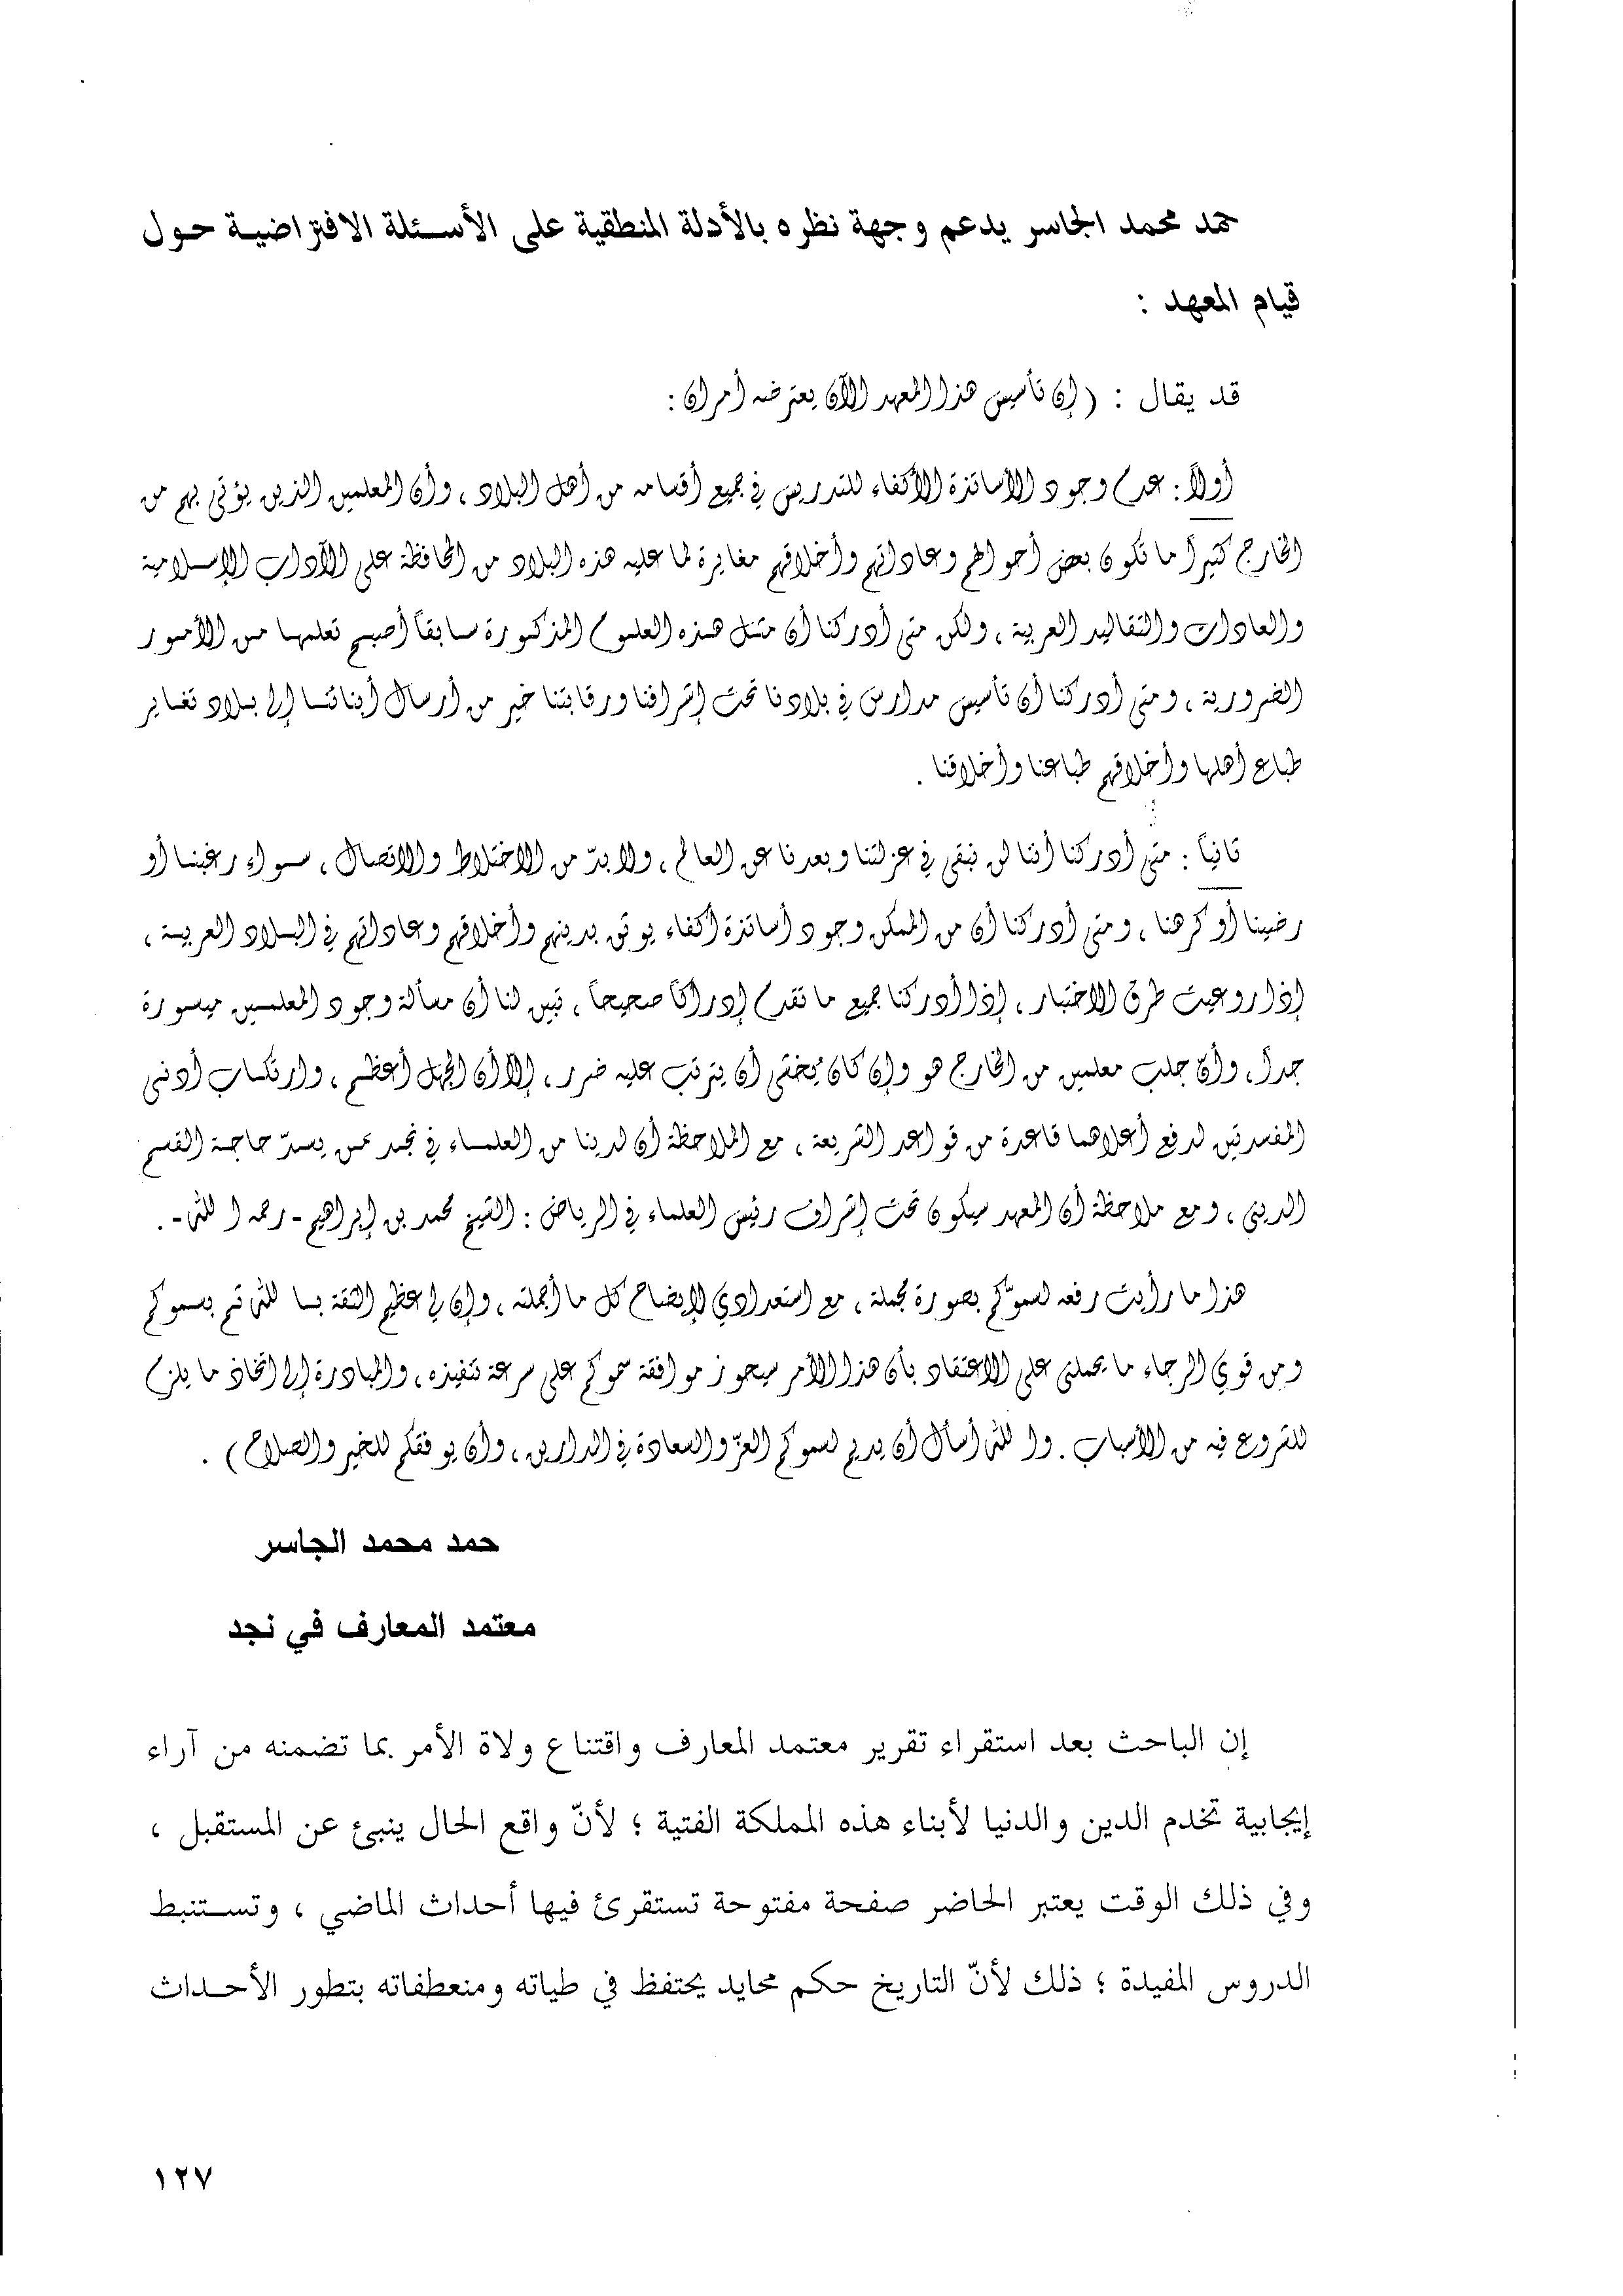 حمد محمد الجاسر يدعم وجهة نظره بالأدلة المنطقية على الأسئلة الافتراضية حول
قيام المعهد :
قد يقال : (إن تأسيس هذا المعهد الآن يعترضه أمران :
أولاً : عدم وجود الأساتذة الأكفاء للتدريس في جميع أقسامه من أهل البلاد ، وأن المعلمين الذين يؤتى بهم من
الخارج كثيراً ما تكون بعض أحوالهم وعاداتهم وأخلاقهم مغايرة لما عليه هذه البلاد من المحافظة على الآداب الإسلامية
والعادات والتقاليد العربية ، ولكن متى أدركنا أن مثل هذه العلوم المذكورة سابقاً أصبح تعلمها من الأمور
الضرورية ، ومتى أدركنا أن تأسيس مدارس في بلادنا تحت إشرافنا ورقابتنا خير من أرسال أبنائنا إلى بلاد تغاير
طباع أهلها وأخلاقهم طباعنا وأخلاقنا .
ثانياً : متى أدركنا أننا لن نبقى في عزلتنا وبعدنا عن العالم ، ولا بدّ من الاختلاط والاتصال ، سواء رغبنا أو
رضينا أو كرهنا ، ومتى أدركنا أن من الممكن وجود أساتذة أكفاء يوثق بدينهم وأخلاقهم وعاداتهم في البلاد العربية ،
إذا روعيت طرق الاختبار ، إذا أدركنا جميع ما تقدم إدراكاً صحيحاً ، تبين لنا أن مسألة وجود المعلمين ميسورة
جداً ، وأنّ جلب معلمين من الخارج هو وإن كان يُخشى أن يترتب عليه ضرر ، إلا أن الجهل أعظم ، وارتكاب أدنى
المفسدتين لدفع أعلاهما قاعدة من قواعد الشريعة ، مع الملاحظة أن لدينا من العلماء في نجد من يسدّ حاجة القسم
الديني ، ومع ملاحظة أن المعهد سيكون تحت إشراف رئيس العلماء في الرياض : الشيخ محمد بن إبراهيم - رحمه الله - .
هذا ما رأيت رفعه لسموّكم بصورة مجملة ، مع استعدادي لإيضاح كل ما أجملته ، وإن لي عظيم الثقة بالله ثم بسموكم
ومن قوي الرجاء ما يحملني على الاعتقاد بأن هذا الأمر سيحوز موافقة سموكم على سرعة تنفيذه ، والمبادرة إلى اتخاذ ما يلزم
للشروع فيه من الأسباب . والله أسأل أن يديم لسموكم العزّ والسعادة في الدارين ، وأن يوفقكم للخير والصلاح) .
حمد محمد الجاسر
معتمد المعارف في نجد
إن الباحث بعد استقراء تقرير معتمد المعارف واقتناع ولاة الأمر بما تضمنه من آراء
إيجابية تخدم الدين والدنيا لأبناء هذه المملكة الفتية ؛ لأنّ واقع الحال ينبئ عن المستقبل ،
وفي ذلك الوقت يعتبر الحاضر صفحة مفتوحة تستقرئ فيها أحداث الماضي ، وتستنبط
الدروس المفيدة ؛ ذلك لأنّ التاريخ حكم محايد يحتفظ في طياته ومنعطفاته بتطور الأحداث
١٢٧